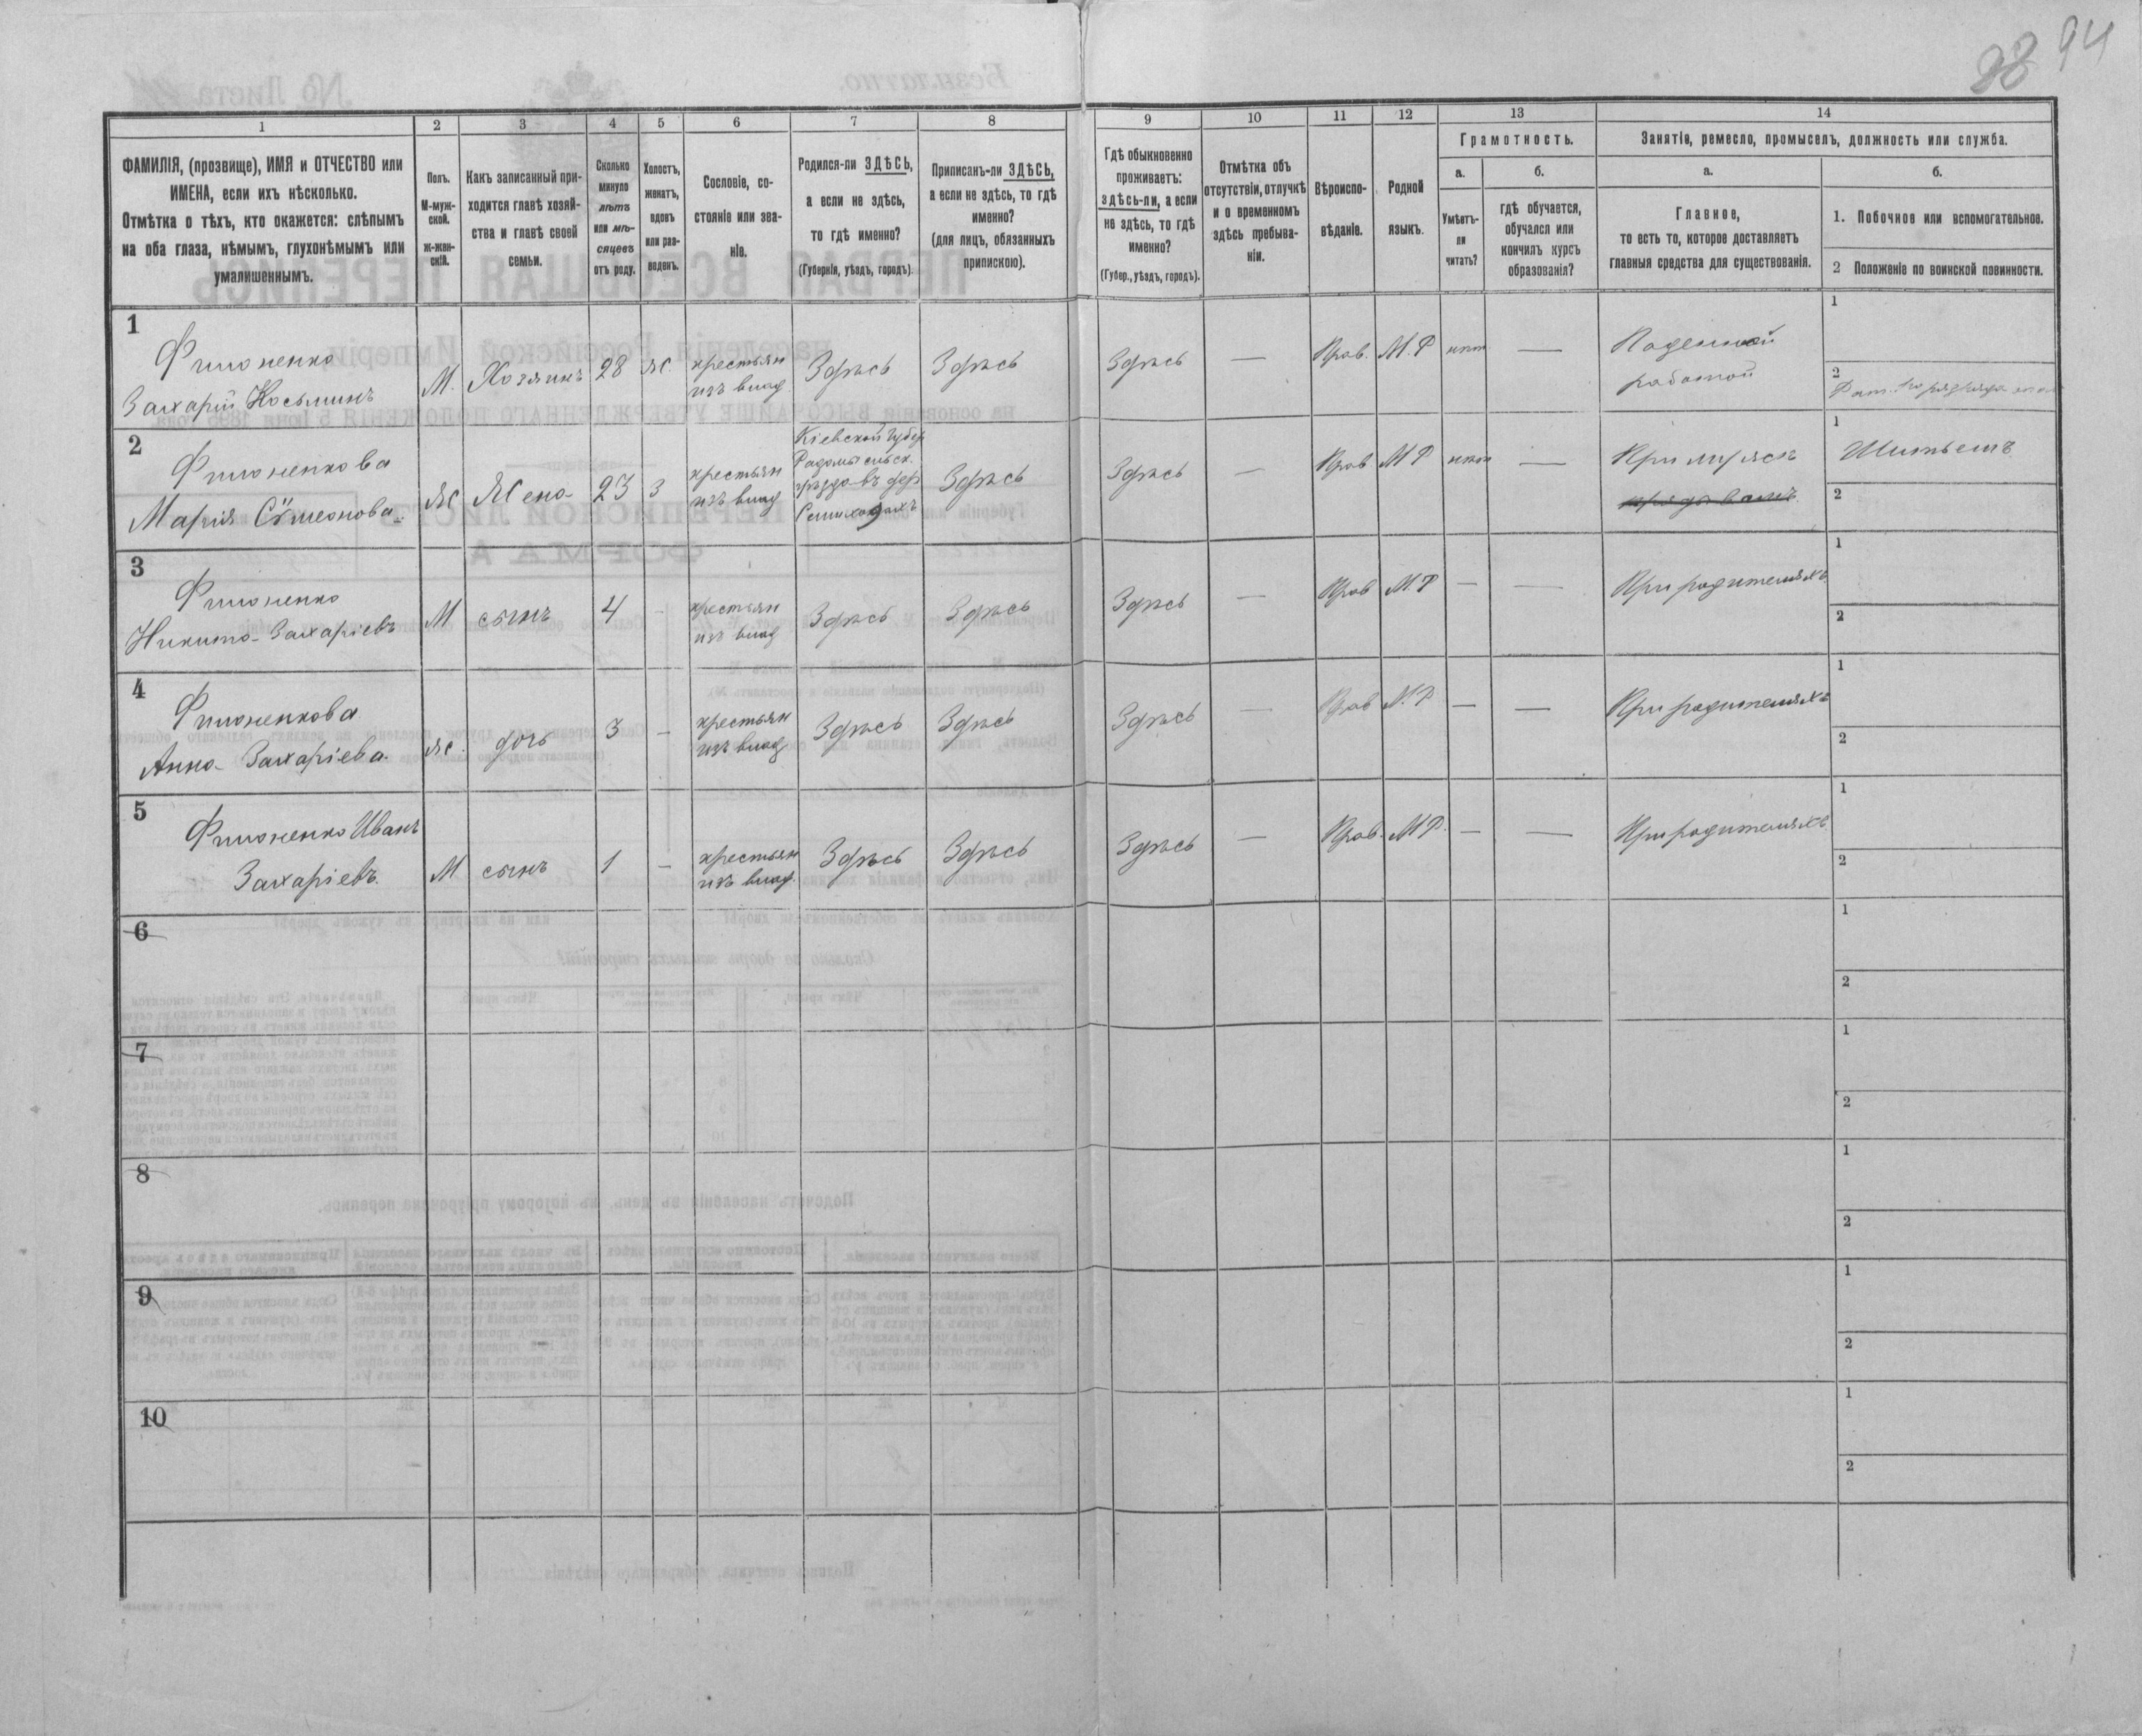 94
1
2
3
4
5
6
7
8
9
10
11
12
13
14
ФАМИЛІЯ, (прозвище), ИМЯ и ОТЧЕСТВО или
ИМЕНА, если ихъ нѣсколько.
Отмѣтка о тѣхъ, кто окажется: слѣпымъ
на оба глаза, нѣмымъ, глухонѣмымъ или
умалишеннымъ.
Полъ.
М-муж-
ской.
Ж-жен-
скій.
Какъ записанный при-
ходится главѣ хозяй-
ства и главѣ своей
семьи.
Сколько
минуло
лѣтъ
или мѣ-
сяцевъ
отъ роду.
Холостъ,
женатъ,
вдовъ
или раз-
веденъ.
Сословіе, со-
стояніе или зва-
ніе.
Родился-ли ЗДѢСЬ,
а если не здѣсь,
то гдѣ именно?
(Губернія, уѣздъ, городъ).
Приписанъ-ли ЗДѢСЬ,
а если не здѣсь, то гдѣ
именно?
(для лицъ, обязанныхъ
припискою).
Гдѣ обыкновенно
проживаетъ:
здѣсь-ли, а если
не здѣсь, то гдѣ
именно?
(Губер., уѣздъ, городъ).
Отмѣтка объ
отсутствіи, отлучкѣ
и о временномъ
здѣсь пребыва-
ніи.
Вѣроиспо-
вѣданіе.
Родной
языкъ.
Грамотность.
а.
Умѣетъ-
ли
читать?
б.
гдѣ обучается,
обучался или
кончилъ курсъ
образованія?
Занятіе, ремесло, промыселъ, должность или служба.
а.
Главное,
то есть то, которое доставляетъ
главныя средства для существованія.
б.
1. Побочное или вспомогательное.
2 Положеніе по воинской повинности.
1
Филоненко
Захарій Косьминъ
М.
Хозяинъ
28
ж.
крестьян
изъ влад
Здѣсь
Здѣсь
Здѣсь
—
Прав.
М.Р
нѣт
—
Поденной
работой
1
2
2
Филоненкова
Марія Сѵмеонова
Ж
Жена
23
З
крестьян
изъ влад
Кіевской губер
Радомысльск.
уѣзда въ дер
Здѣсь
Здѣсь
—
Прав
М Р
нѣт
—
При мужѣ
1
Шитьемъ
2
3
Филоненко
Никита Захаріевъ
М
сынъ
4
-
крестьян
изъ влад
Здѣсь
Здѣсь
Здѣсь
—
Прав
М.Р
—
—
При родителяхъ
1
2
4
Филоненкова
Анна Захаріева
Ж.
дочь
3
-
крестьян
изъ влад
Здѣсь
Здѣсь
Здѣсь
—
Прав
М.Р
—
—
При родителяхъ
1
2
5
Филоненко Иванъ
Захаріевъ.
М
сынъ
1
—
крестьян
изъ влад.
Здѣсь
Здѣсь
Здѣсь
—
Прав.
М Р.
—
—
При родителяхъ
1
2
6
1
2
7
1
2
8
1
2
9
1
2
10
1
2